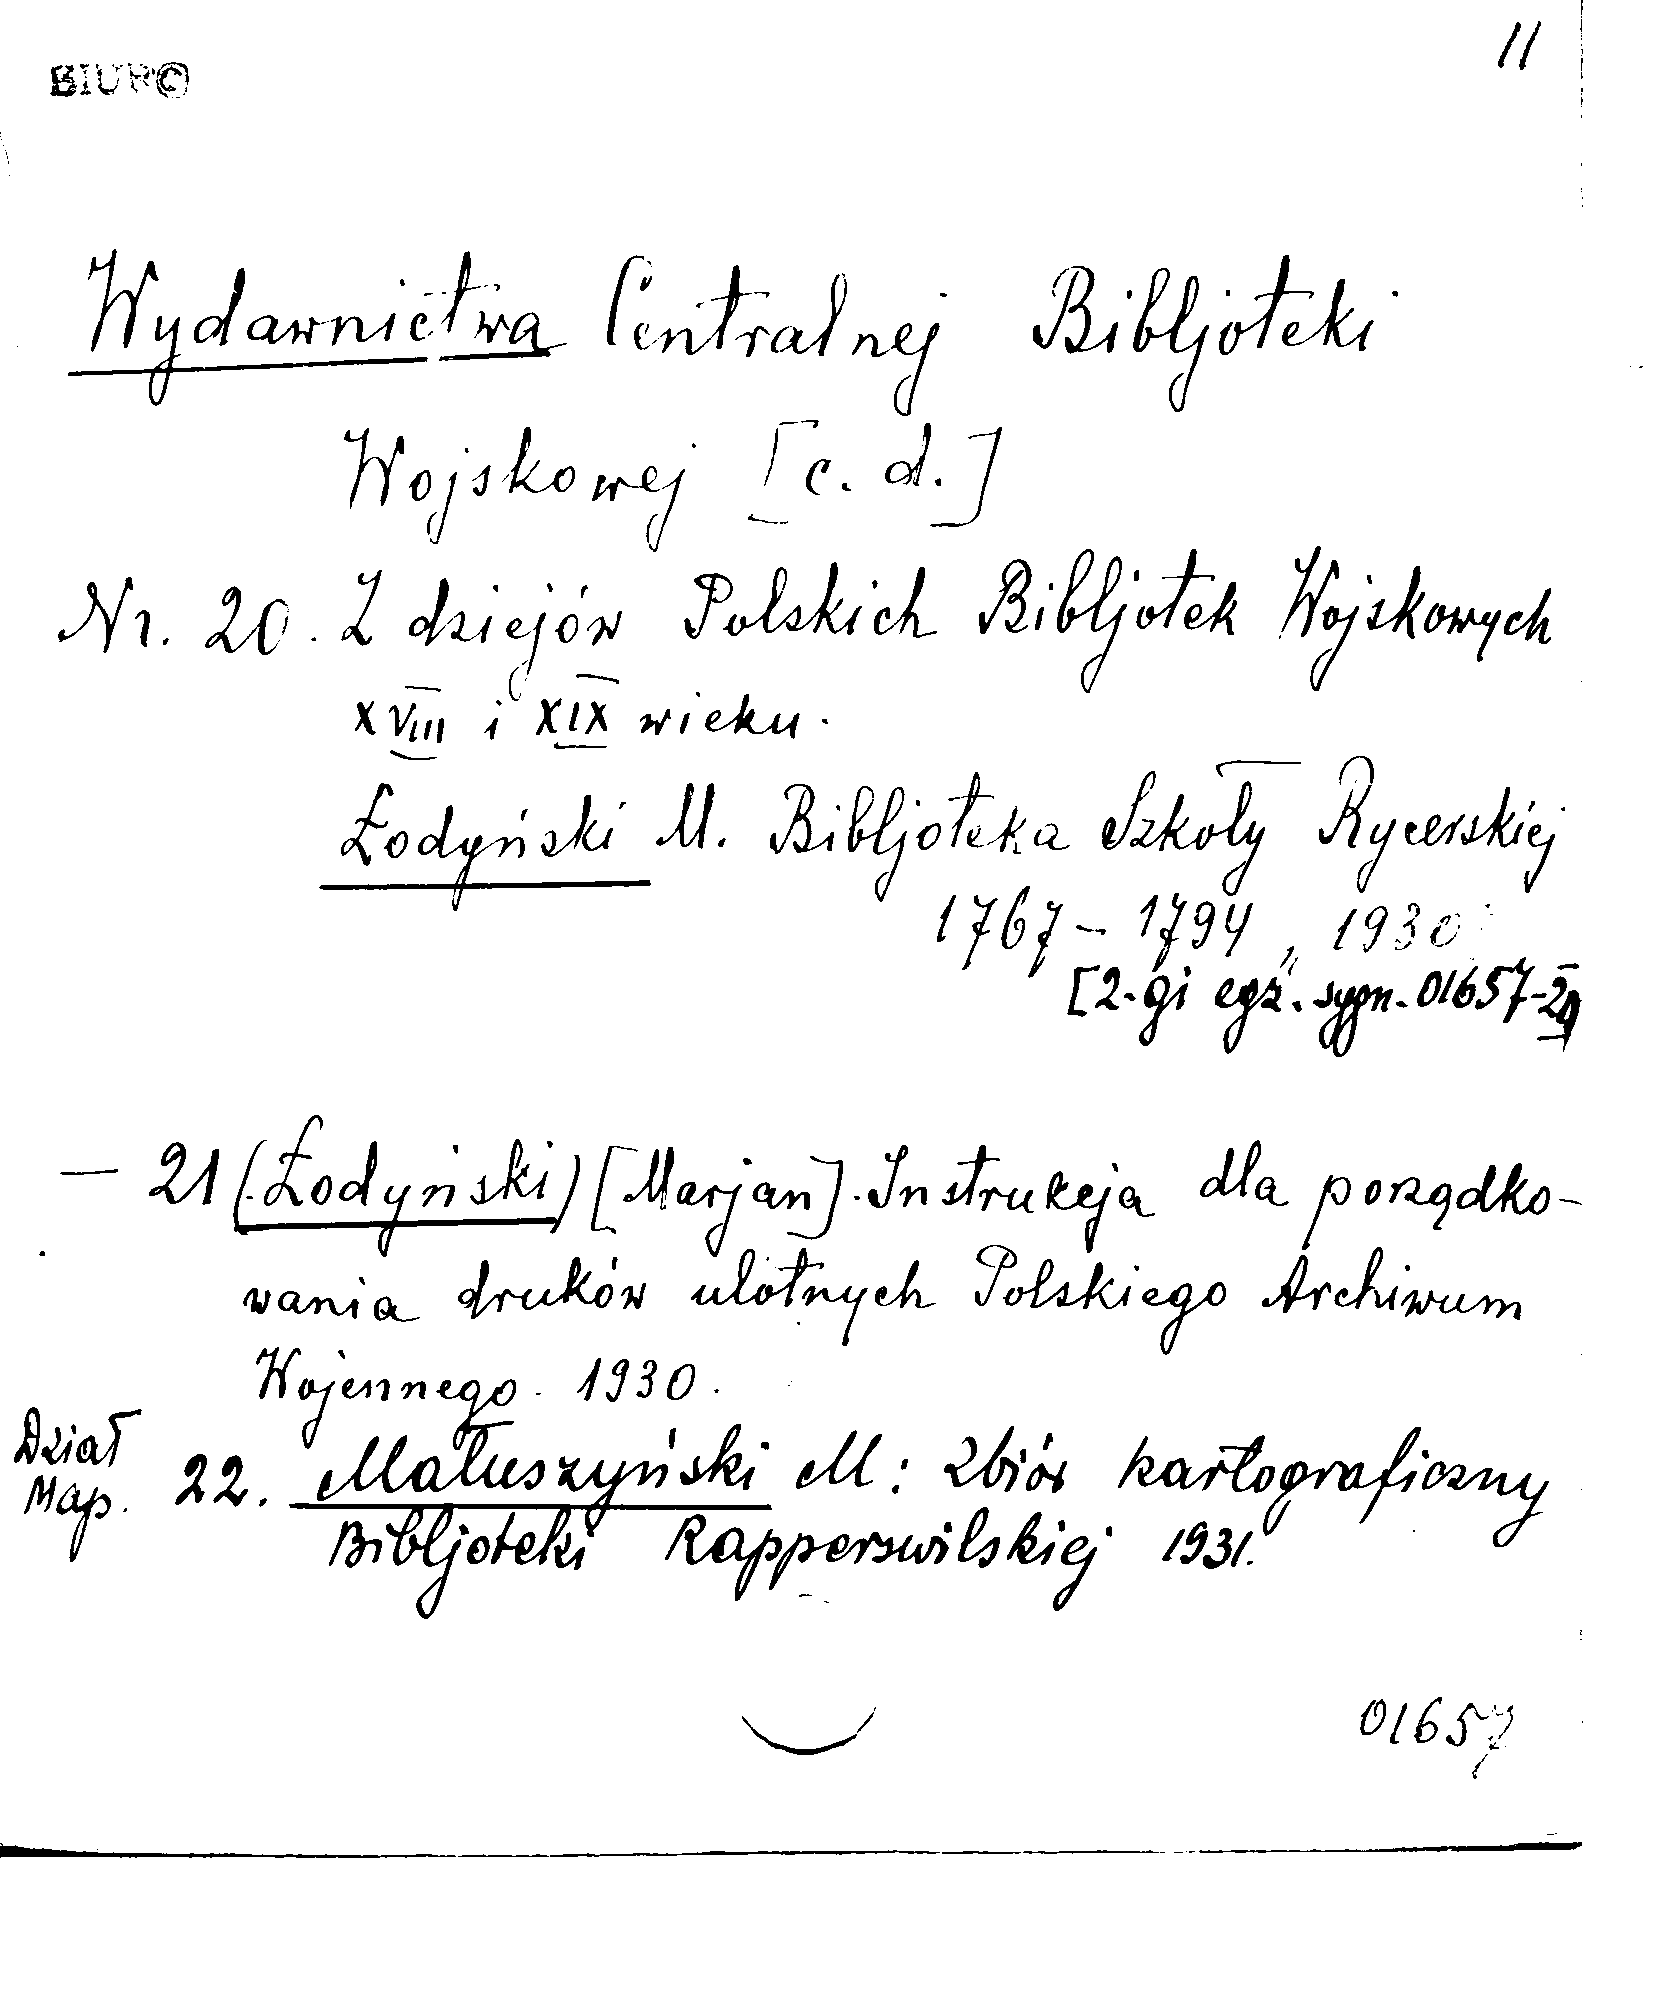 11
BIURO
Wydawnictwa Centralnej Bibljoteki
Wojskowej [c. d.]
Nr. 20. Z dziejów Polskich Bibljotek Wojskowych
XVIII i XIX wieku.
Łodyński M. Bibljoteka Szkoły Rycerskiej
1767 – 1794, 1930
[2-gi egz. sygn. 01657-20
— 21 (Łodyński) [Marjan]. Instrukcja dla porządko-
wania druków ulotnych Polskiego Archiwum
Wojennego. 1930.
Dział
Map. 22. Matuszyński M: Zbiór kartograficzny
Bibljoteki Rapperswilskiej 1931.
01657